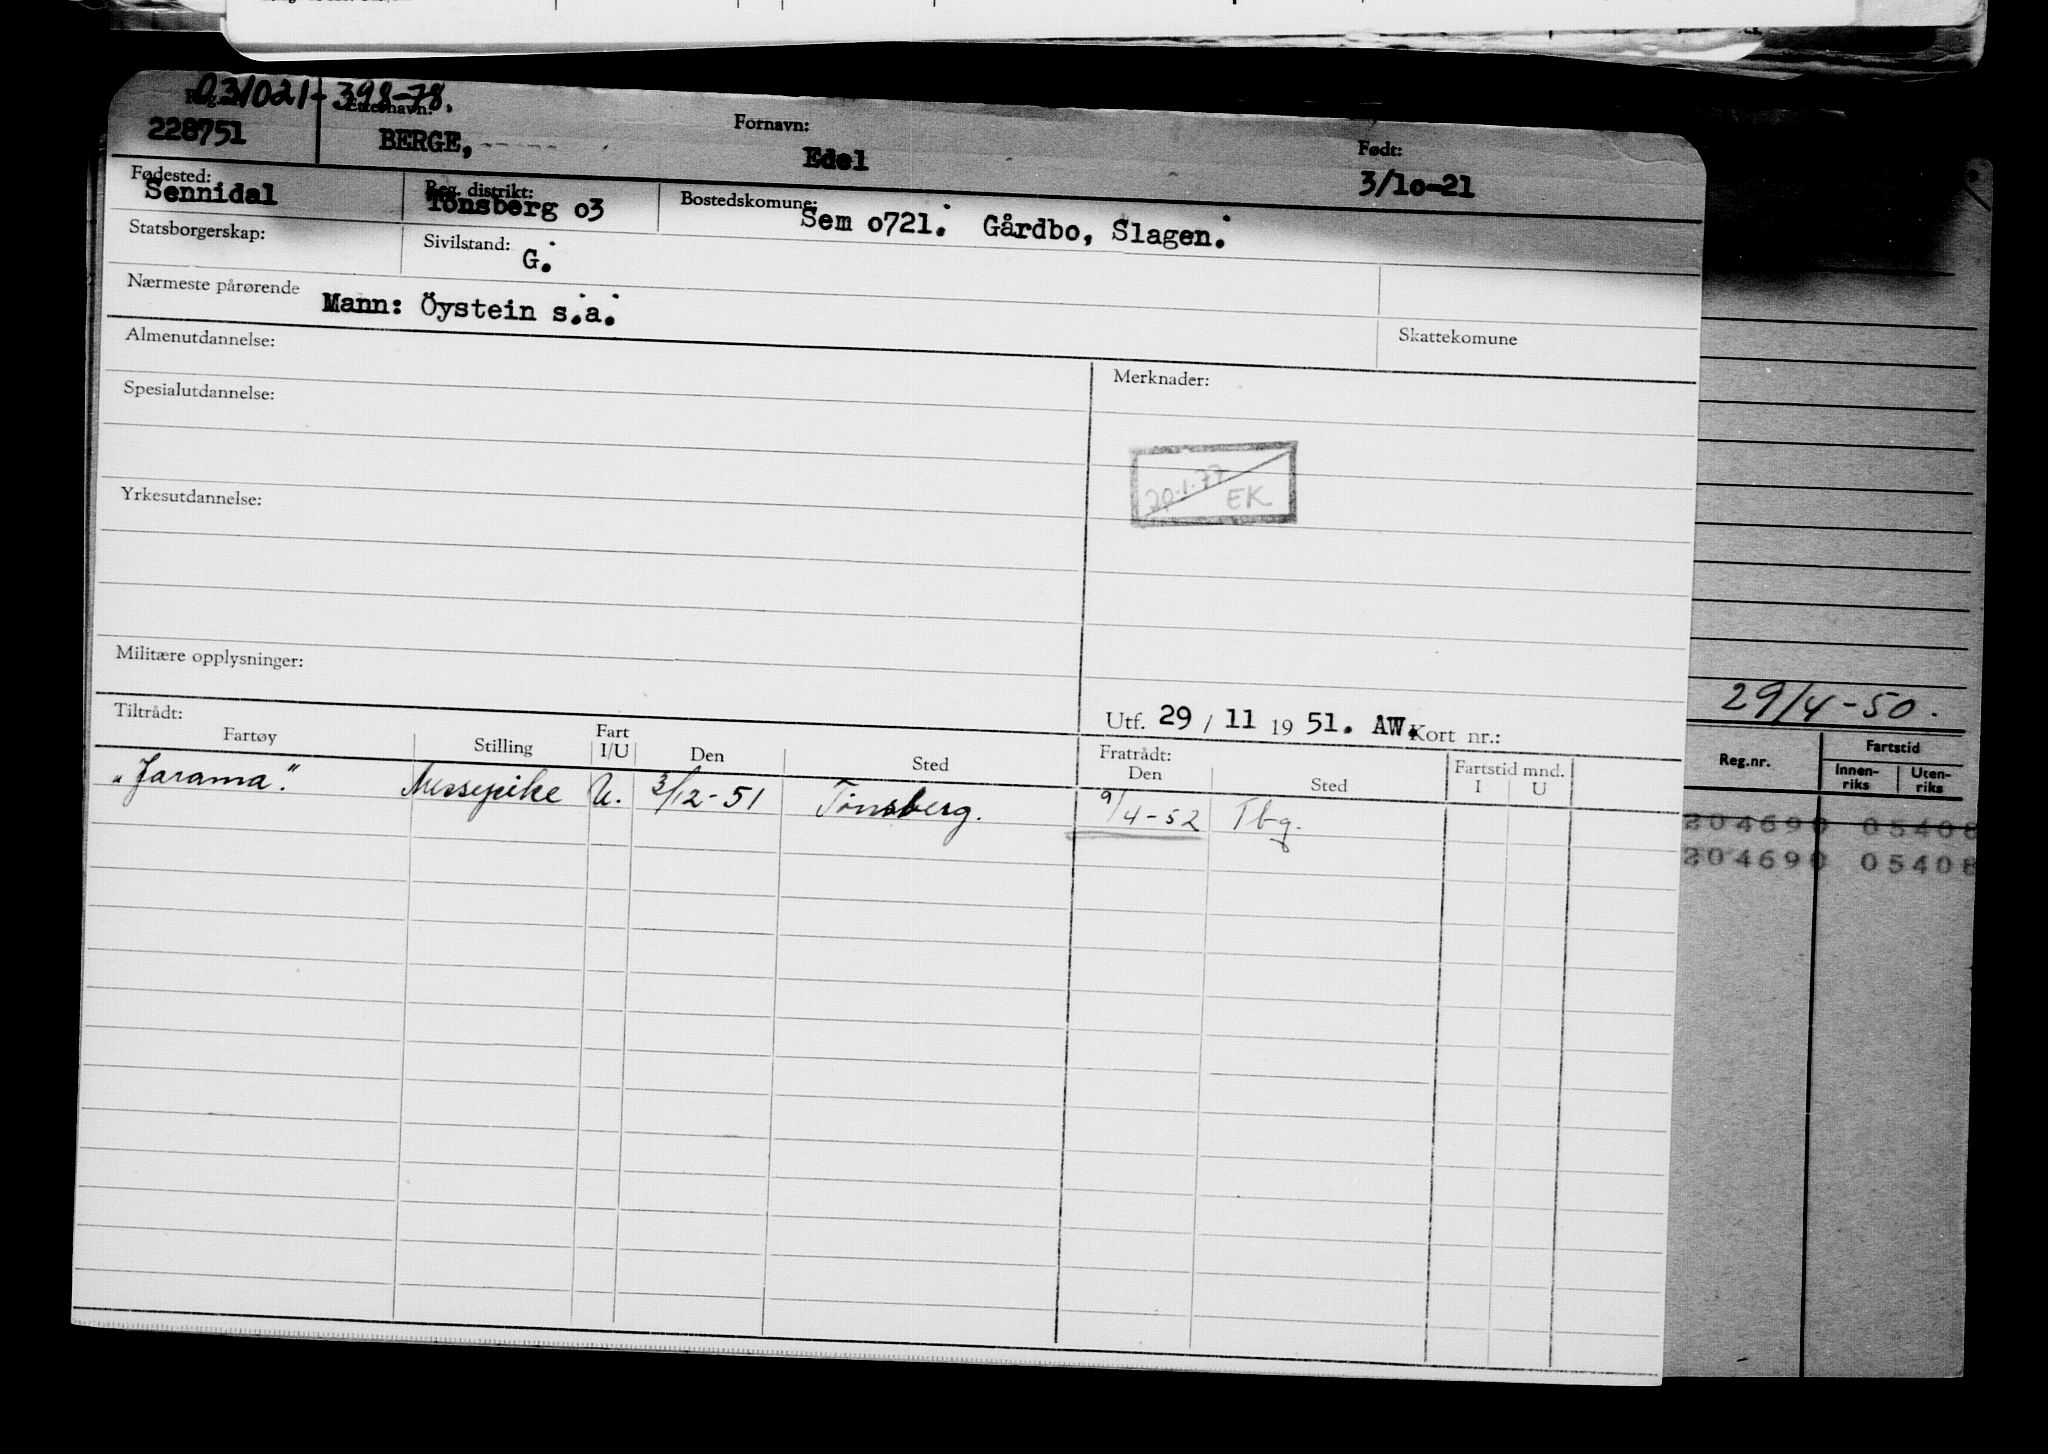 031021-398-78.
Etternavn: Fornavn: Født:
228751 BERGE, Edel 3/10-21
Fødested: Reg. distrikt: Bostedskomune:
Sennidal Tönsberg o3 Sem o721. Gårdbo, Slagen.
Statsborgerskap: Sivilstand: G.
Nærmeste pårørende Mann: Öystein s.a.
Skattekomune
Almenutdannelse: Merknader:
Spesialutdannelse:
20.1.77 EK
Yrkesutdannelse:
Militære opplysninger:
Utf. 29 / 11 19 51. AW. Kort nr.:
Tiltrådt: Fratrådt:
Fartøy Stilling Fart I/U Den Sted Den Sted Fartstid mnd. I U
"Jarama". Messepike U. 3/12-51 Tønsberg. 9/4-52 Tbg.
29/4-50.
Reg.nr. Fartstid
Innen-riks Uten-riks
204690 05408
204690 05408